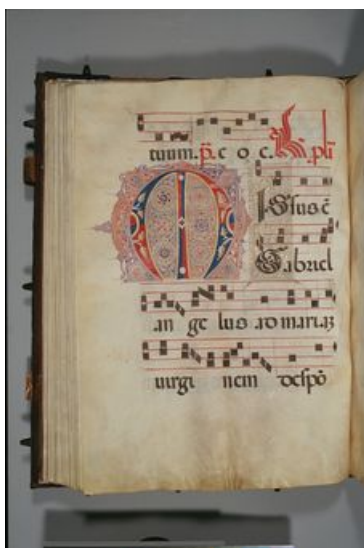 tuum. p̄. c o c.
MIssus ē
Gabriel
an ge lus ad mariaꝫ
uirgi nem despō